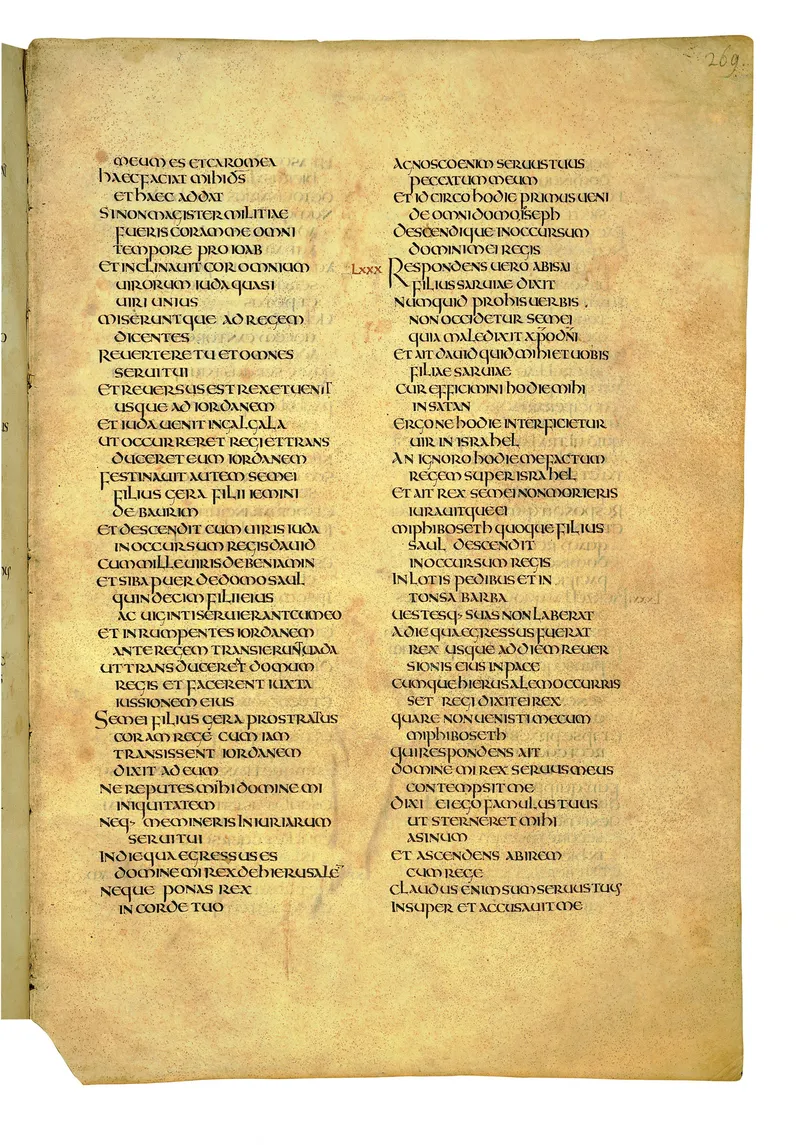 269.
meum es et caro mea
haec faciat mihi d̅s̅
et haec addat
si non magister militiae
fueris coram me omni
tempore pro ioab
et inclinauit cor omnium
uirorum iuda quasi
uiri unius
miseruntque ad regem
dicentes
reuertere tu et omnes
serui tui
et reuersus est rex et uenit
usque ad iordanem
et iuda uenit in galgala
ut occurreret regi et trans
duceret eum iordanem
festinauit autem semei
filius gera filii iemini
de baurim
et descendit cum uiris iuda
in occursum regis dauid
cum mille uiris de beniamin
et siba puer de domo saul
quindecim filii eius
ac uiginti serui erant cum eo
et inrumpentes iordanem
ante regem transierunt uada
ut transduceret domum
regis et facerent iuxta
iussionem eius
Semei filius gera prostratus
coram rege cum iam
transissent iordanem
dixit ad eum
ne reputes mihi domine mi
iniquitatem
neq· memineris iniuriarum
serui tui
in die qua egressus es
domine mi rex de hierusalē
neque ponas rex
in corde tuo
agnosco enim seruus tuus
peccatum meum
et idcirco hodie primus ueni
de omni domo ioseph
descendique in occursum
domini mei regis
Lxxx Respondens uero abisai
filius saruiae dixit
numquid pro his uerbis
non occidetur semei
quia maledixit x̅p̅o d̅n̅i
et ait dauid quid mihi et uobis
filiae saruiae
cur efficimini hodie mihi
in satan
ergone hodie interficietur
uir in israhel
an ignoro hodie me factum
regem super israhel
et ait rex semei non morieris
iurauitque ei
miphiboseth quoque filius
saul descendit
in occursum regis
inlotis pedibus et in
tonsa barba
uestesq· suas non laberat
a die qua egressus fuerat
rex usque ad diem reuer
sionis eius in pace
cumque hierusalem occurris
set regi dixit ei rex
quare non uenisti mecum
miphiboseth
qui respondens ait
domine mi rex seruus meus
contempsit me
dixi ei ego famulus tuus
ut sterneret mihi
asinum
et ascendens abirem
cum rege
claudus enim sum seruus tuus
insuper et accusauit me